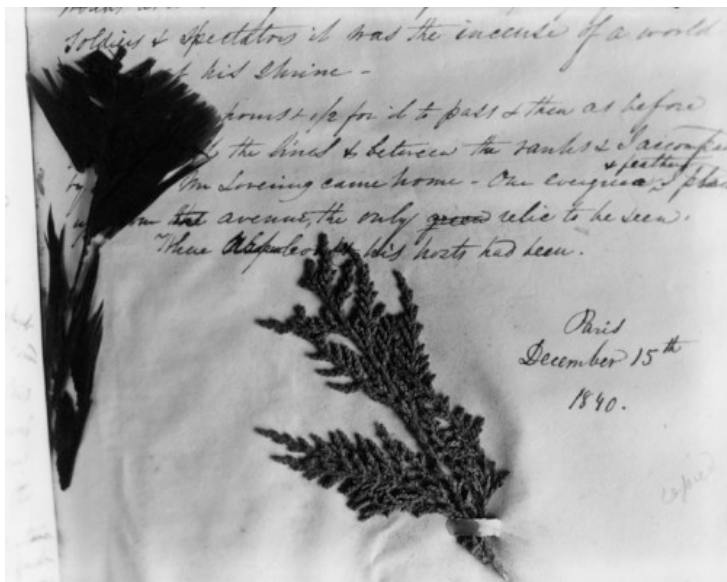 Soldiers & Spectators it was the incense of a world
at his Shrine -
hours & 1/2 for it to pass & then as before
the lines & between the ranks &
came home - Our evergreen & feather I
avenue, the only green relic to be seen.
Where Napoleon & his hosts had been.
Paris
December 15th
1840.